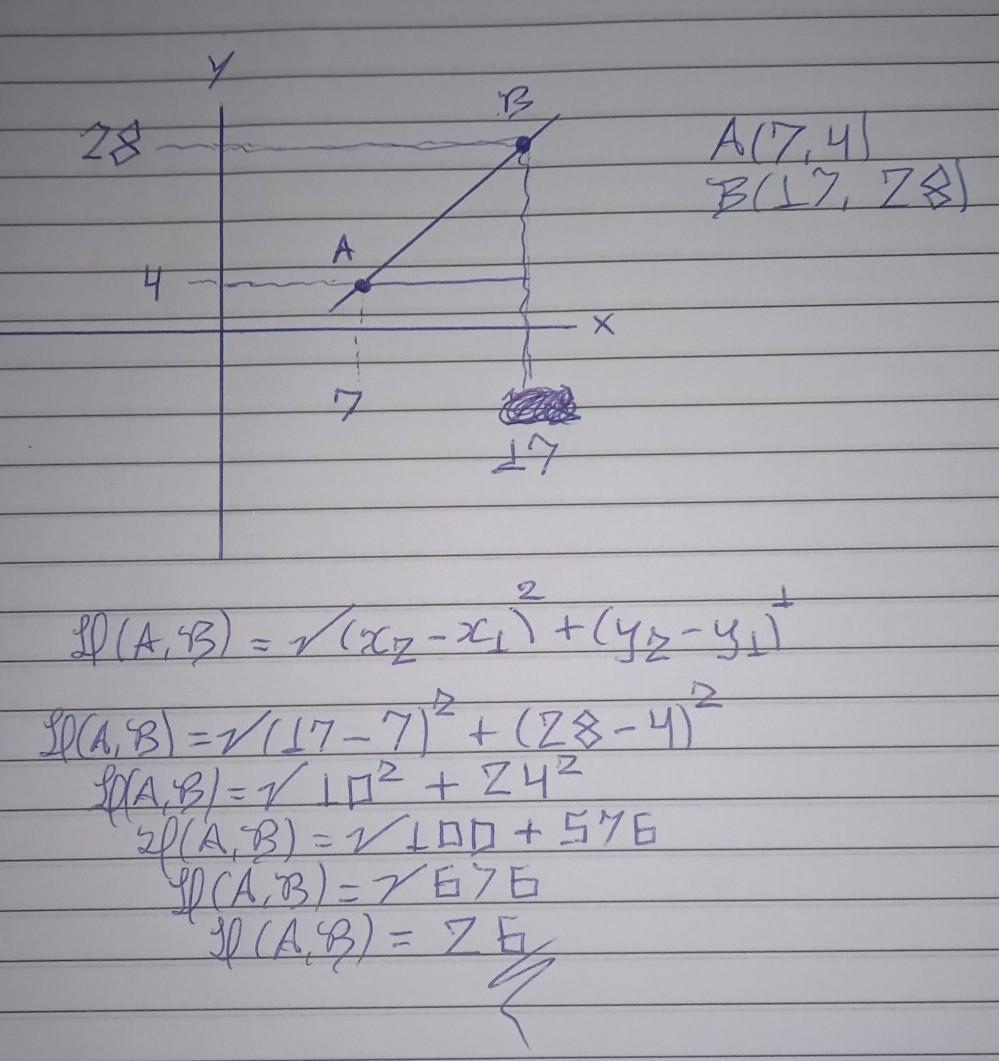 Y
B
28
A(7,4)
B(17, 28)
A
4
X
7
17
D(A,B) = √(x₂-x₁)² + (y₂-y₁)¹
D(A,B) = √(17-7)² + (28-4)²
D(A,B) = √10² + 24²
D(A,B) = √100 + 576
D(A,B) = √676
D(A,B) = 26